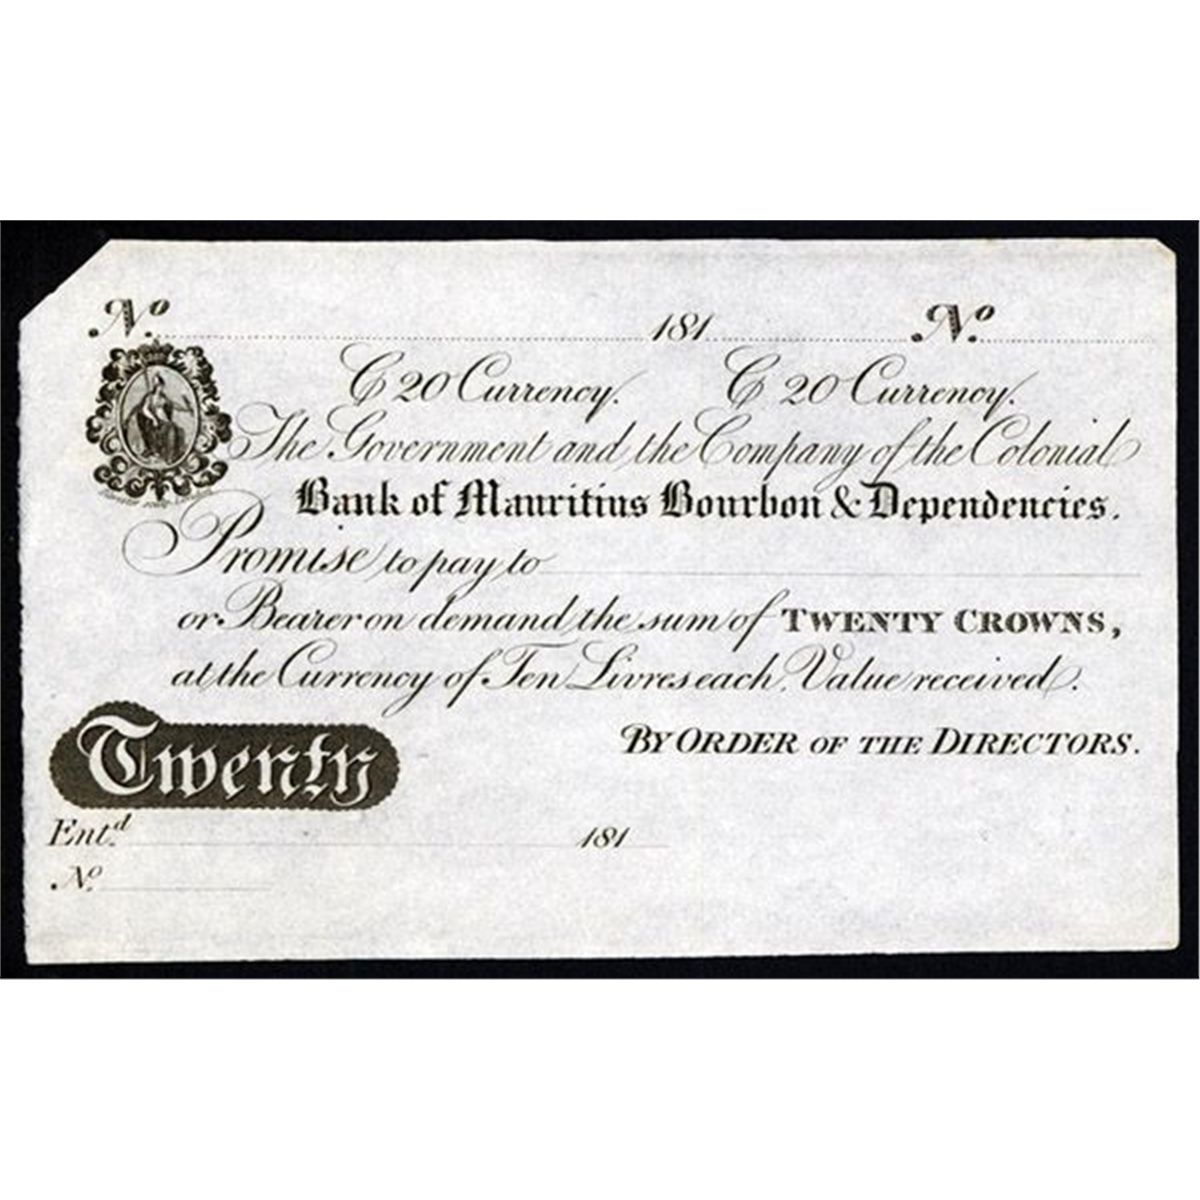 No. 181 No.
₢ 20 Currency. ₢ 20 Currency.
The Government and the Company of the Colonial
Bank of Mauritius Bourbon & Dependencies.
Promise to pay to
or Bearer on demand, the sum of TWENTY CROWNS,
at the Currency of Ten Livres each, Value received.
BY ORDER OF THE DIRECTORS.
Twenty
Entd. 181
No.